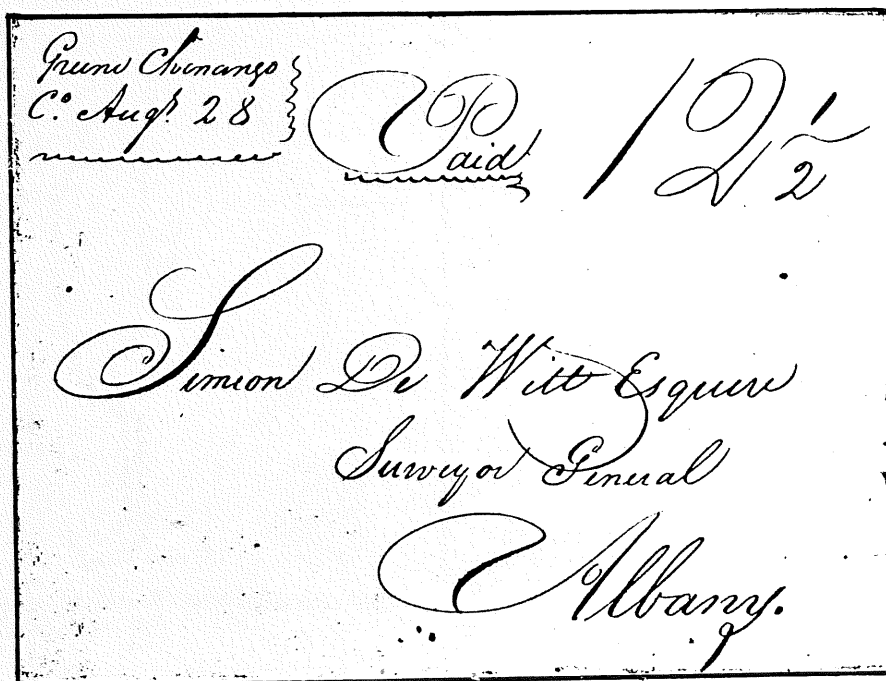 Greene Chenango
Co. Augt. 28
Paid 12 1/2
Simeon De Witt Esquire
Surveyor General
Albany.